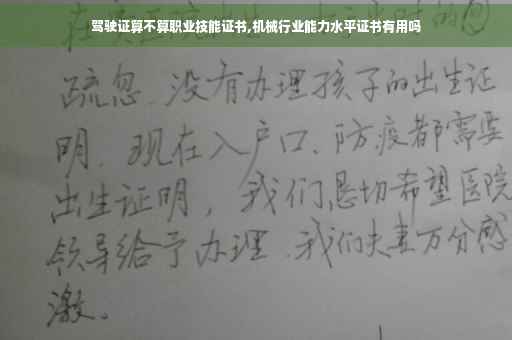 驾驶证算不算职业技能证书,机械行业能力水平证书有用吗
疏忽、没有办理孩子的出生证
明、现在入户口、防疫都需要
出生证明，我们恳切希望医院
领导给予办理、我们夫妻万分感
激。